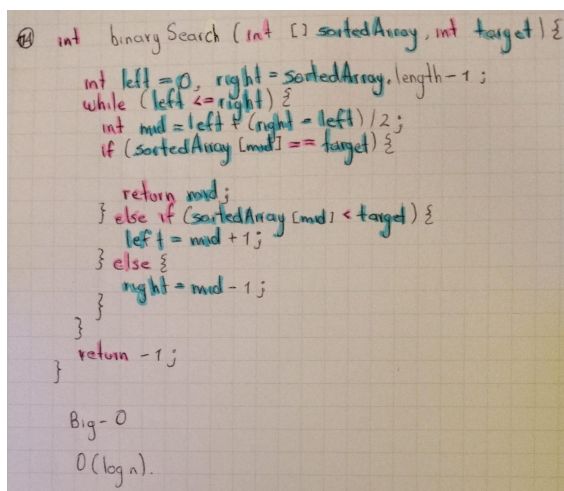 14 int binarySearch (int [] sortedArray, int target) {
int left = 0, right = sortedArray.length - 1 ;
while (left <= right) {
int mid = left + (right - left) / 2 ;
if (sortedArray [mid] == target) {
return mid ;
} else if (sortedArray [mid] < target) {
left = mid + 1 ;
} else {
right = mid - 1 ;
}
}
return - 1 ;
}
Big - O
O (log n).